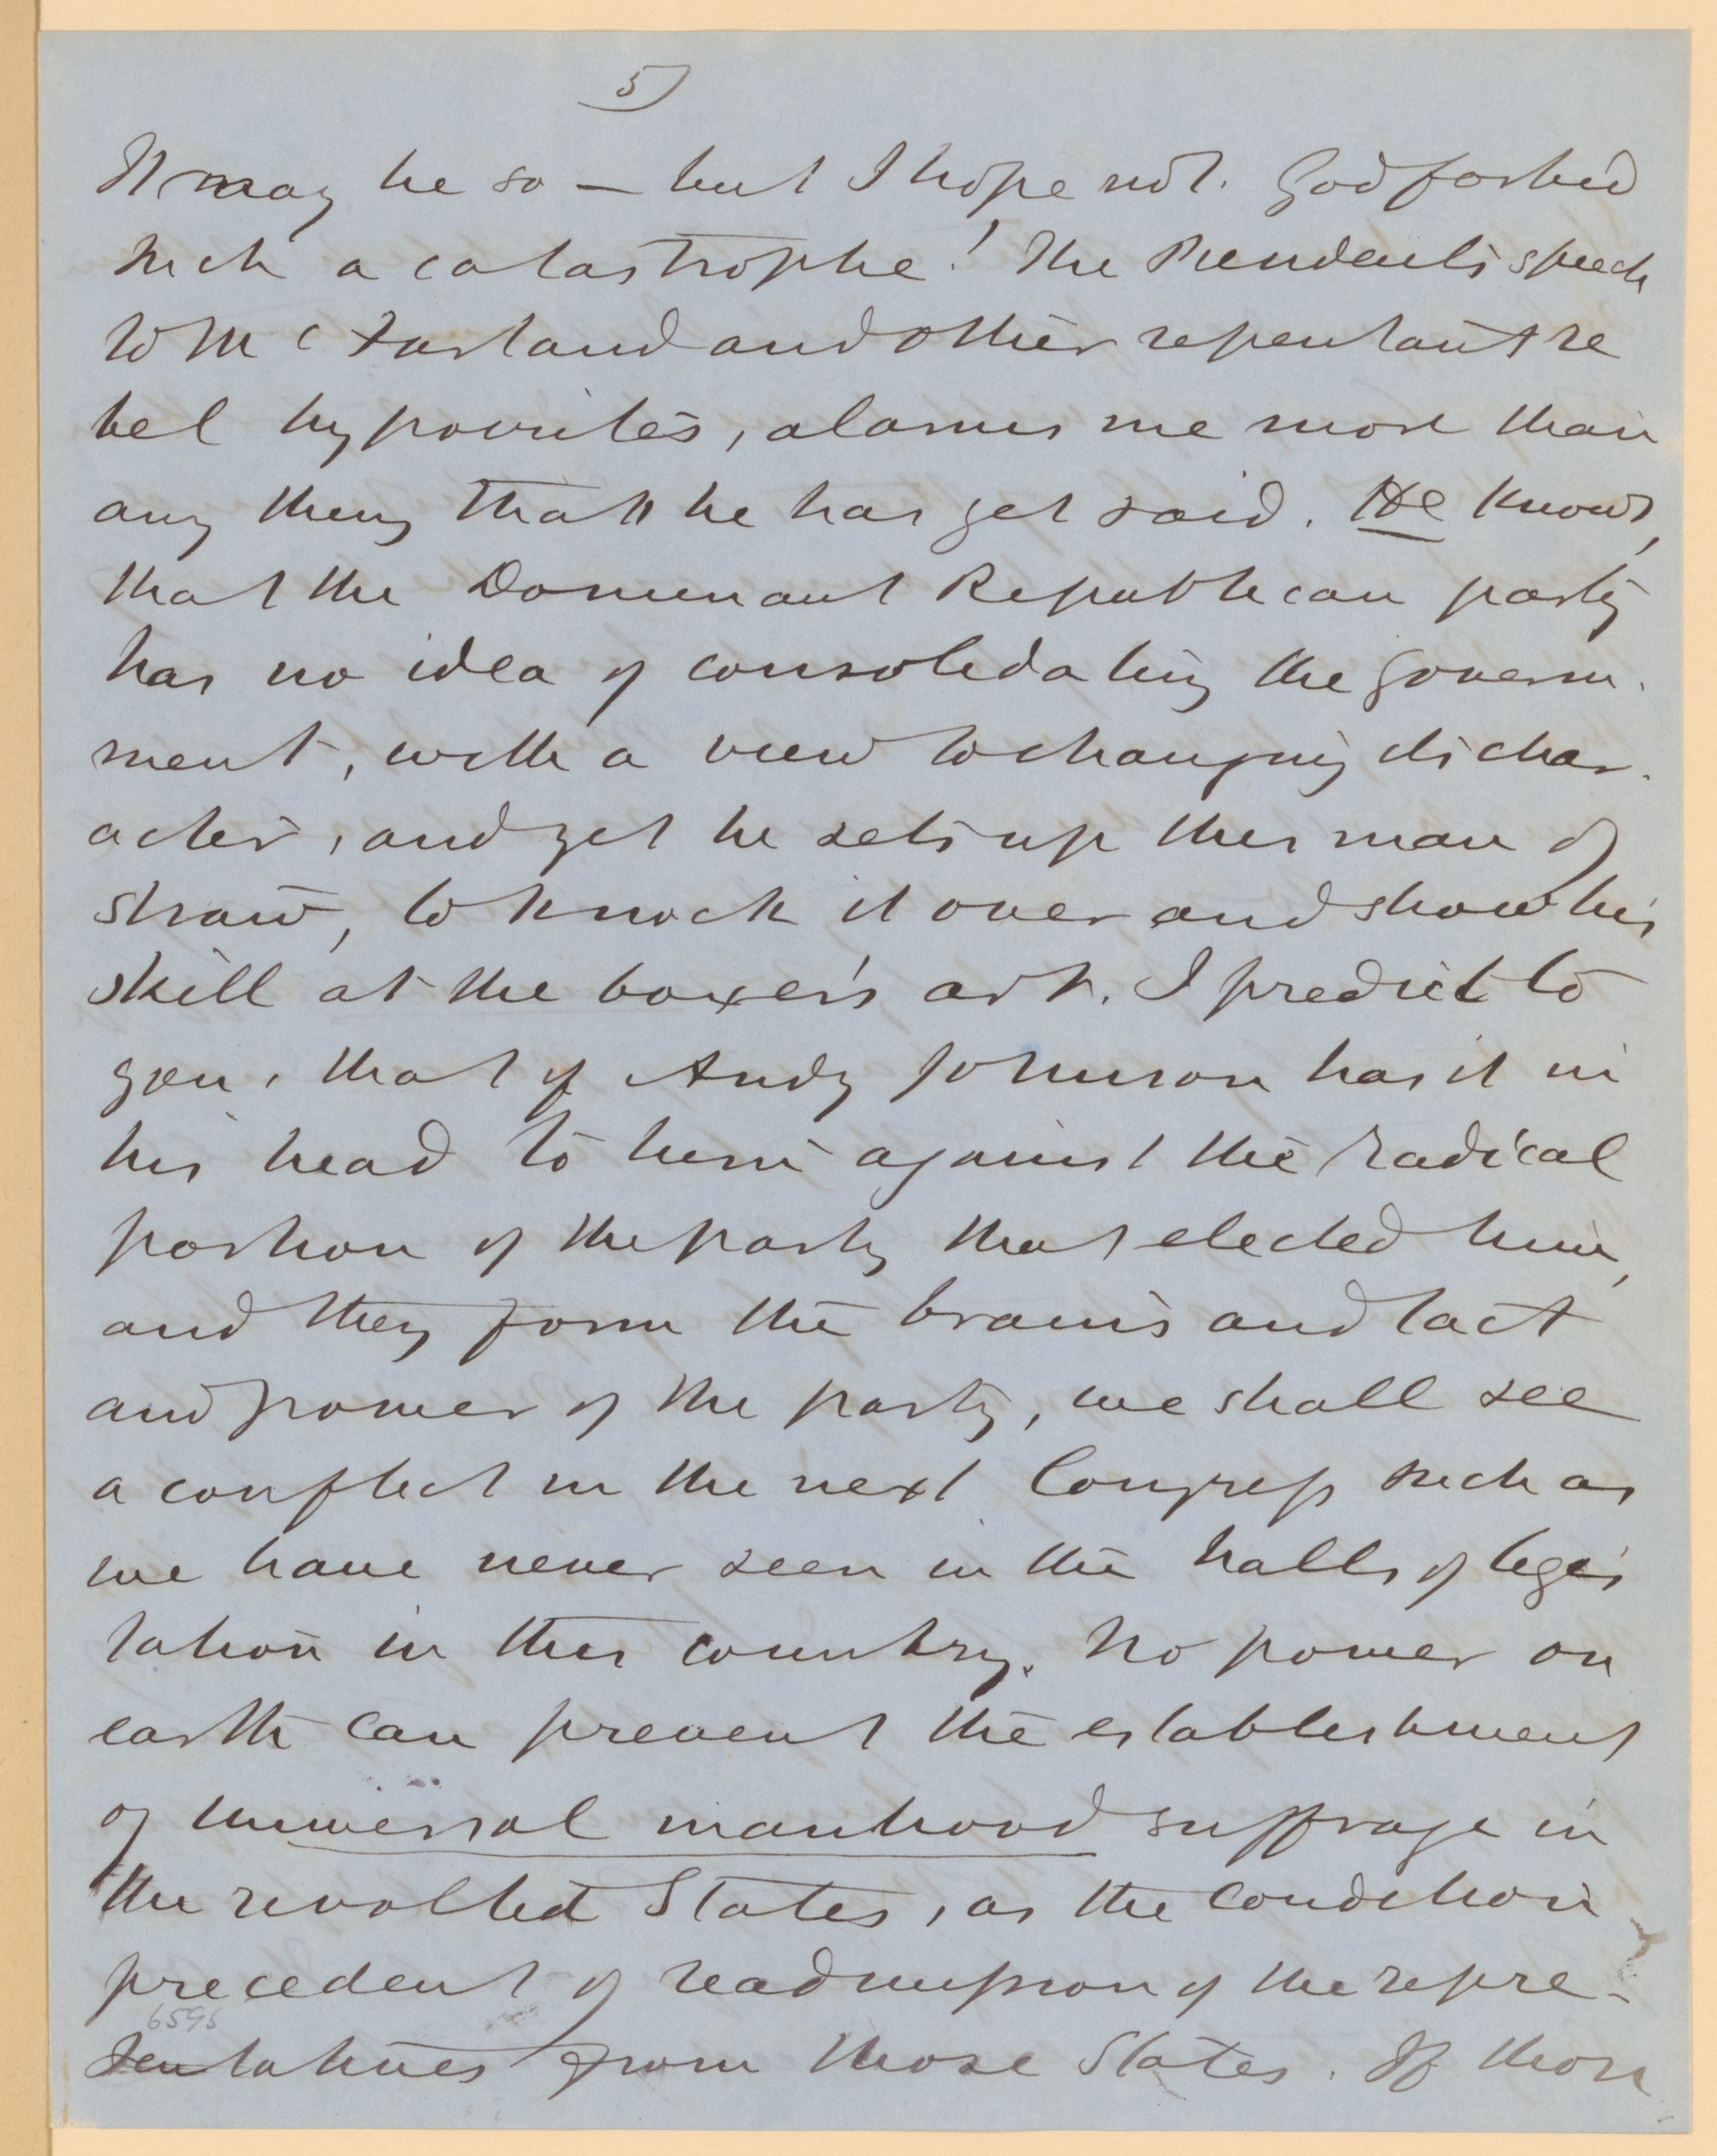 5)
It may be so — but I hope not. God forbid
such a catastrophe! The President's speech
to McFarland and other repentant re
bel hypocrites, alarms me more than
any thing that he has yet said. He knows,
that the Dominant Republican party
has no idea of consolidating the govern-
ment, with a view to changing its char-
acter, and yet he sets up this man of
straw, to knock it over and show his
skill at the boxer's art. I predict to
you, that if Andy Johnson has it in
his head to turn against the radical
portion of the party that elected him,
and they form the brains and tact
and power of the party, we shall see
a conflict in the next Congress such as
we have never seen in the halls of legis
lation in this country. No power on
earth can prevent the establishment
of universal manhood suffrage in
the revolted States, as the condition
precedent of readmission of the repre-
6595
sentatives from those States. If those